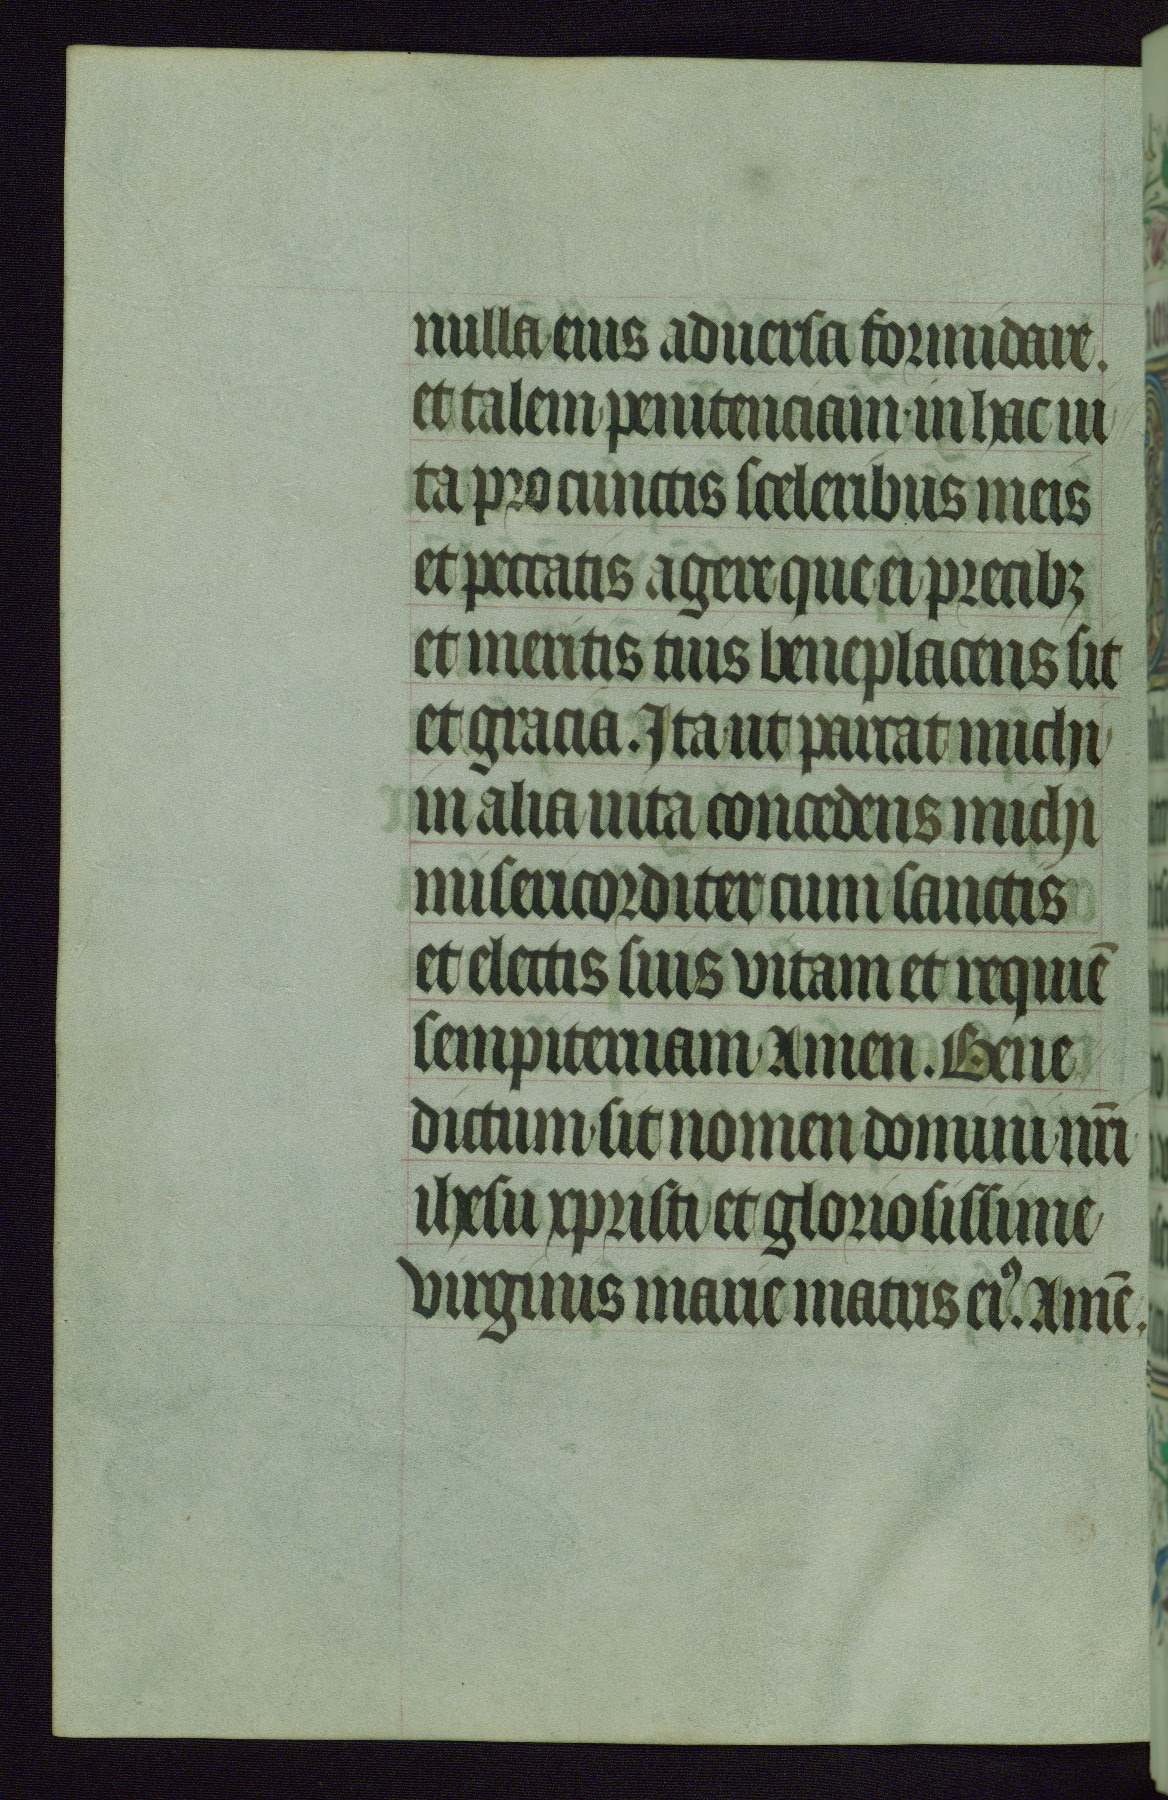 nulla eius aduersa formidare.
et talem penitenciam in hac ui
ta pro cunctis sceleribus meis
et peccatis agere que ei precibꝫ
et meritis tuis beneplacens sit
et gracia. Ita ut parcat michi
in alia uita concedens michi
misericorditer cum sanctis
et electis suis vitam et requiē
sempiternam Amen. Bene
dictum sit nomen domini nr̄i
ihesu xpristi et gloriosissime
virginis marie matris eiꝰ. Amē.